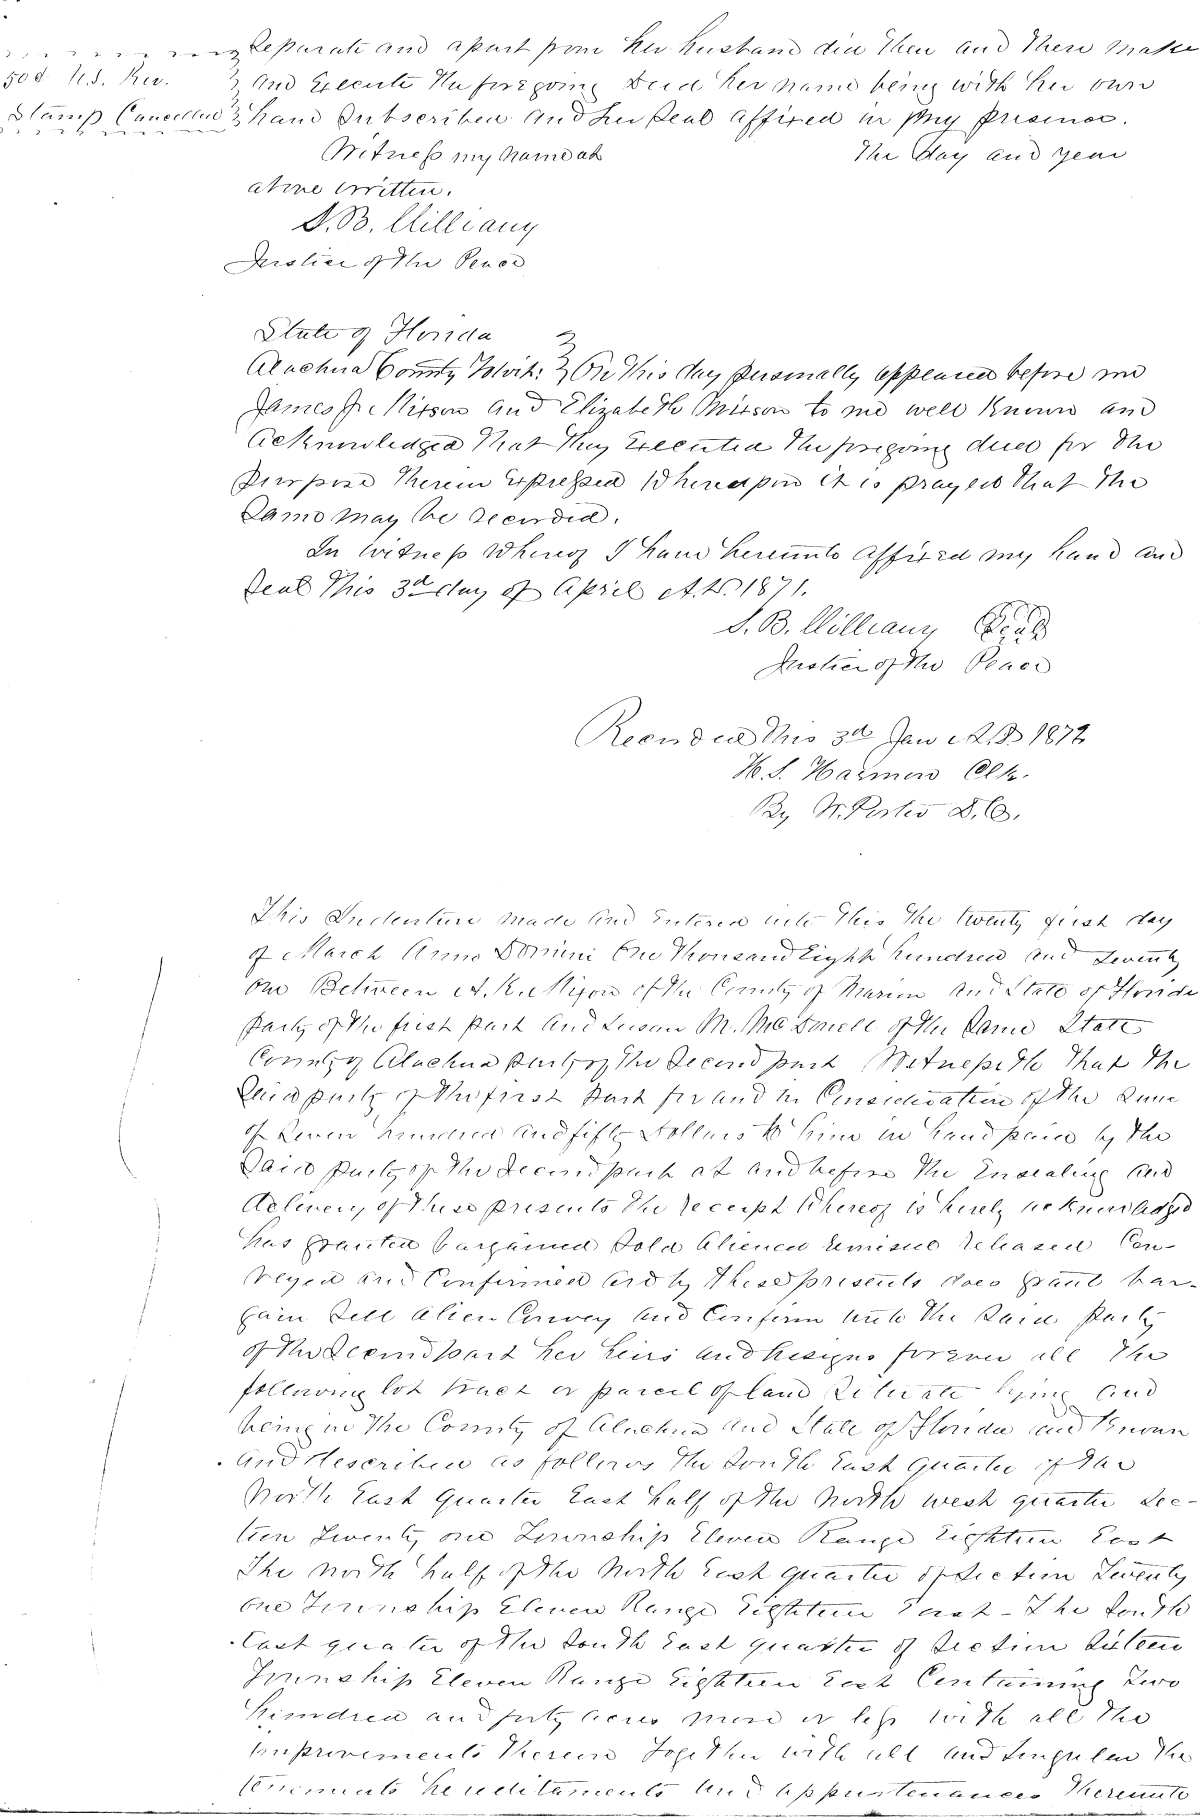 Separate and apart from her husband did then and there make
50¢ U.S. Rev.
and Execute the foregoing Deed her name being with her own
Stamp Cancelled
hand Subscribed and her Seal affixed in my presence.
Witness my name at The day and year
above written.
S. B. Williams
Justice of the Peace
State of Florida
Alachua County Towit: On this day personally appeared before me
James J. Mixson and Elizabeth Mixson to me well Known and
Acknowledged That they Executed the foregoing deed for the
purpose therein Expressed Whereupon it is prayed that the
Same may be recorded.
In witness whereof I have hereunto affixed my hand and
Seal This 3d day of April A.D. 1871.
S. B. Williams Seal
Justice of the Peace
Recorded this 3d Jan A.D. 1872
H. S. Harmon Clk.
By W. Porter D.C.
This Indenture made and Entered into this the twenty first day
of March Anno Domini One thousand Eight hundred and Seventy
one Between A. K. Mixon of the County of Marion and State of Florida
party of the first part and Susan M. McDonell of the Same State
County of Alachua party of the Second part Witnesseth That the
Said party of the first part for and in Consideration of the Sum
of Seven hundred and fifty Dollars to him in hand paid by the
Said party of the Second part at and before the Ensealing and
delivery of these presents the receipt whereof is hereby acknowledged
has granted bargained Sold aliened remised released Con-
veyed and Confirmed and by these presents does grant bar-
gain Sell alien Convey and Confirm unto the Said party
of the Second part her heirs and assigns forever all the
following lot tract or parcel of land Situate lying and
being in the County of Alachua and State of Florida and Known
and described as follows the South East quarter of the
North East quarter East half of the North west quarter Sec-
tion Twenty one Township Eleven Range Eighteen East
the North half of the North East quarter of Section Twenty
one Township Eleven Range Eighteen East - The South
East quarter of the South East quarter of Section Sixteen
Township Eleven Range Eighteen East Containing Two
hundred and forty acres more or less with all the
improvements thereon Together with all and Singular the
tenements hereditaments and appurtenances thereunto